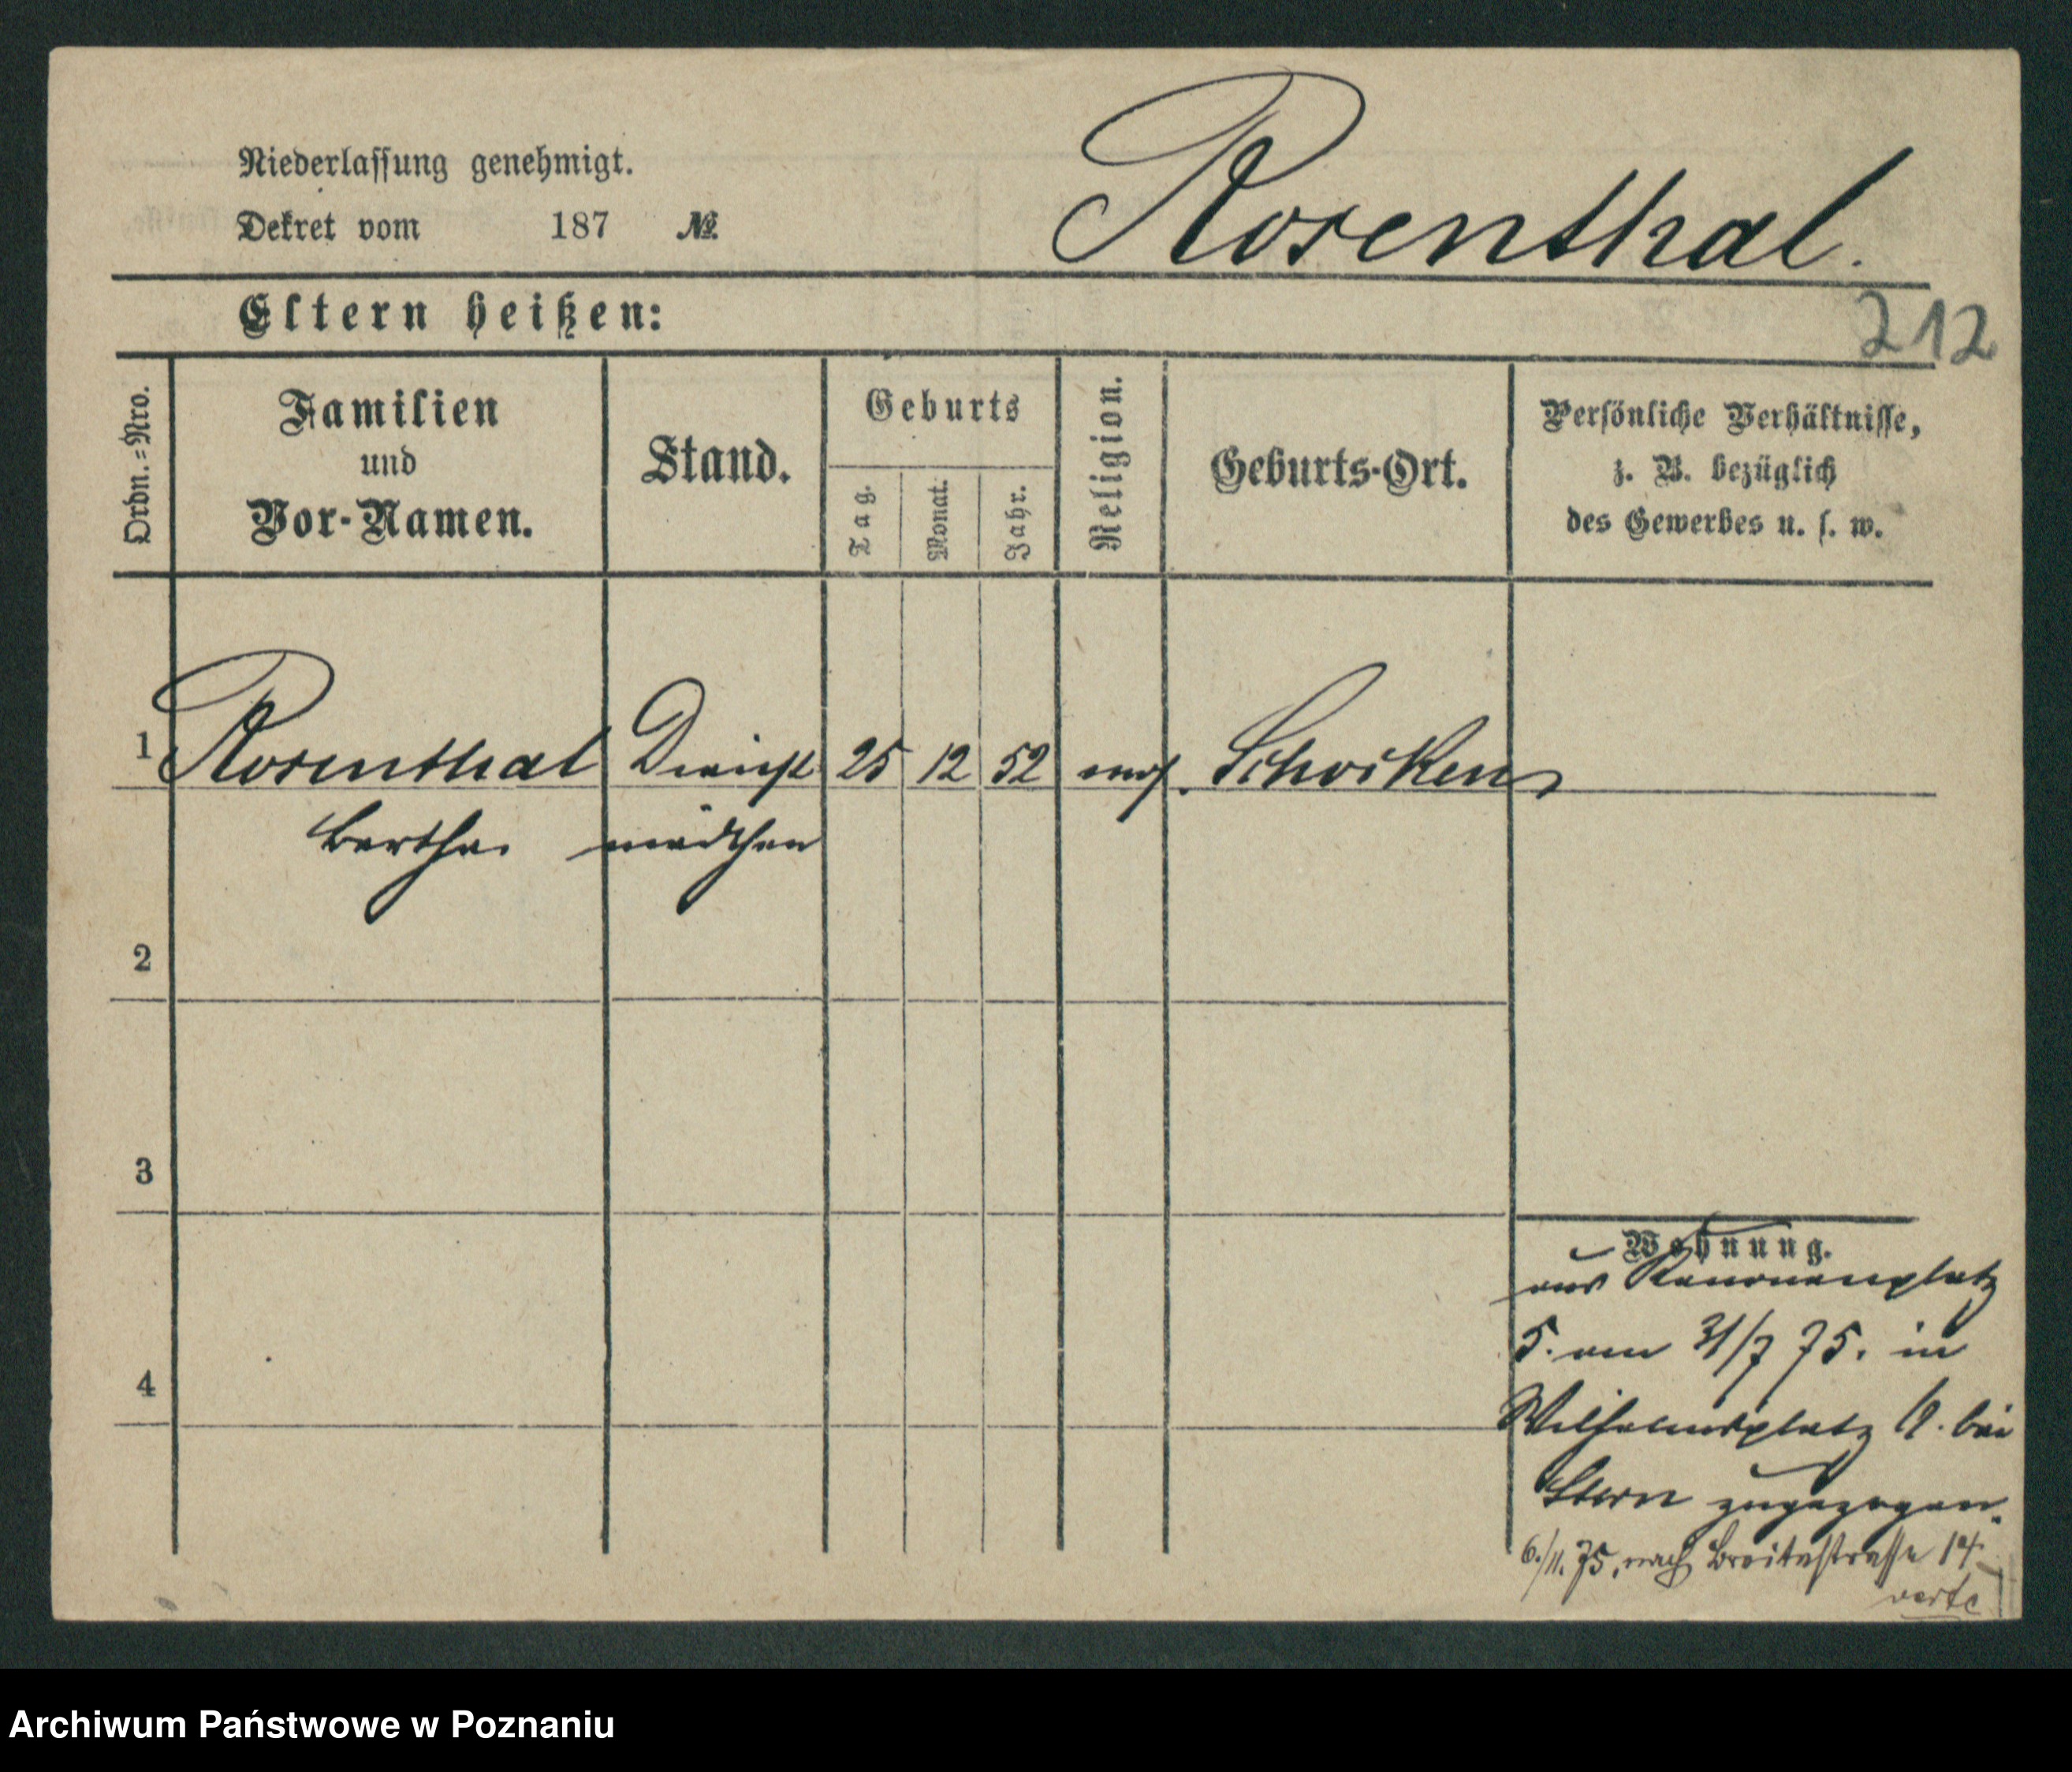 Niederlassung genehmigt.
Dekret vom 187 №
Rosenthal.
Eltern heißen:
212
Ordn.=Nro.
Familien
und
Vor-Namen.
Stand.
Geburts
Tag.
Monat.
Jahr.
Religion.
Geburts-Ort.
Persönliche Verhältnisse,
z. B. bezüglich
des Gewerbes u. s. w.
1 Rosenthal Dienst 25 12 52 mos. Schocken
Bertha. mädchen
2
3
4
Wohnung.
aus Kanonenplatz
5. am 31/7 75. in
Wilhelmsplatz bei
Stern zugezogen.
6./11. 75, nach Breitestrasse 14.
verte
Archiwum Państwowe w Poznaniu